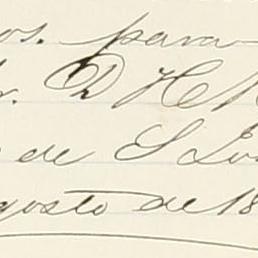 os. para
r. D H R
e de S Lou
gosto de 18